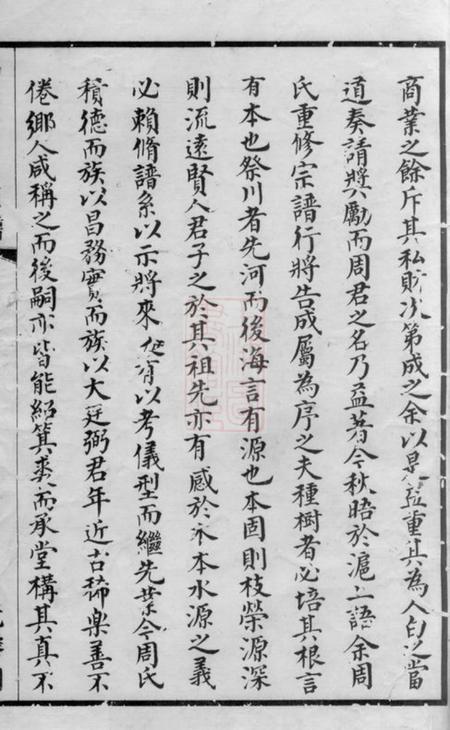 商業之餘斥其私財次第成之余以是益重其為人勻之當
道奏請獎勵而周君之名乃益著今秋晤於滬上語余周
氏重修宗譜行將告成屬為序之夫種樹者必培其根言
有本也祭川者先河而後海言有源也本固則枝榮源深
則流遠賢人君子之於其祖先亦有感於木本水源之義
必賴脩譜系以示將來使有以考儀型而繼先業今周氏
積德而族以昌務實而族以大廷弼君年近古稀樂善不
倦鄉人咸稱之而後嗣亦皆能紹箕裘而承堂構其真不